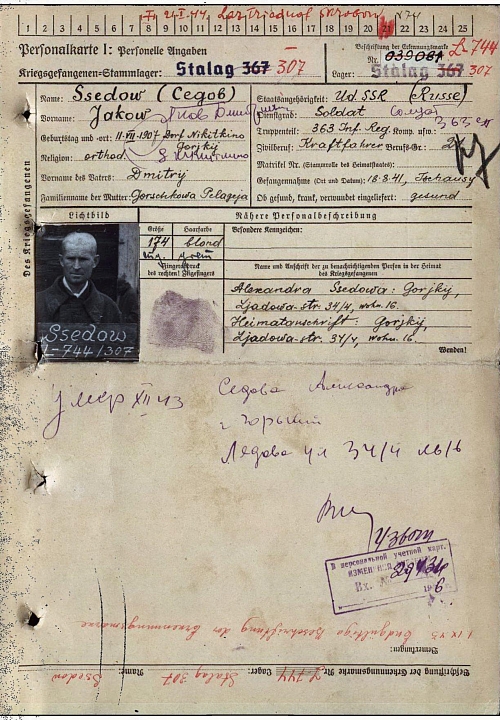 1 2 3 4 5 6 7 8 9 10 11 12 13 14 15 16 17 18 19 20 21 22 23 24 25
Personalkarte I: Personelle Angaben
Beschriftung der Erkennungsmarke
Nr. 039081 L-744
Kriegsgefangenen-Stammlager: Stalag 367 307
Lager: Stalag 367 307
Des Kriegsgefangenen
Name: Ssedow (Седов)
Vorname: Jakow Яков
Geburtstag und -ort: 11.VII.1907 Dorf Nikitkino
Gorjkij
Religion: orthod.
Vorname des Vaters: Dmitrij
Familienname der Mutter: Gorschkowa Pelageja
Staatsangehörigkeit: Ud.SSR (Russe)
Dienstgrad: Soldat Солдат
Truppenteil: 363 Inf. Reg. Komp. usw.: 363
Zivilberuf: Kraftfahrer Berufs-Gr.:
Matrikel Nr. (Stammrolle des Heimatstaates):
Gefangennahme (Ort und Datum): 18.8.41, Tschausy
Ob gesund, krank, verwundet eingeliefert: gesund
Lichtbild
Nähere Personalbeschreibung
Größe
Haarfarbe
Besondere Kennzeichen:
174
blond
Fingerabdruck
des rechten! Zeigefingers
Name und Anschrift der zu benachrichtigenden Person in der Heimat
des Kriegsgefangenen
Alexandra Ssedowa: Gorjkij,
Ljadowa-str. 34/4, wohn. 16.
Heimatanschrift: Gorjkij,
Ljadowa-str. 34/4, wohn. 16.
Wenden!
Ssedow
L-744/307
умер XII 43
Седова Александра
г Горький
Лядова ул 34/4
В персональной учетной карт.
Вх. №
Bemerkungen:
Beschriftung der Erkennungsmarke Nr. L 744 Lager: Stalag 307 Ssedow